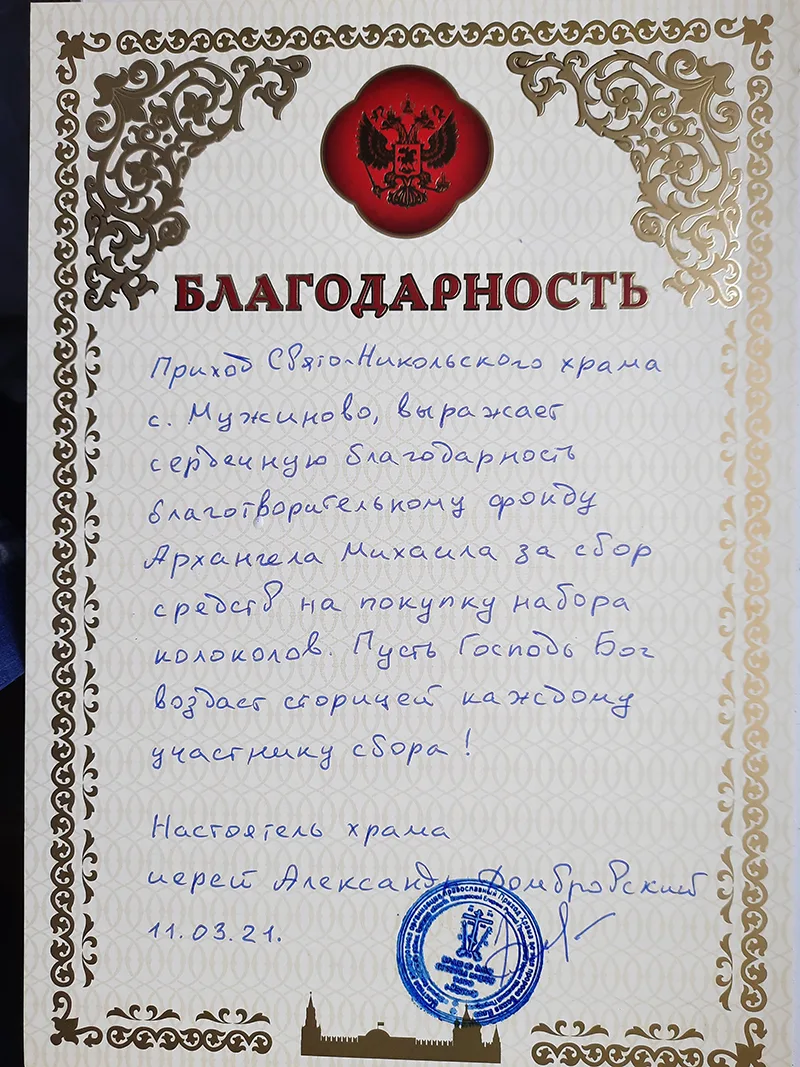 БЛАГОДАРНОСТЬ
Приход Свято-Никольского храма
с. Мужиново, выражает
сердечную благодарность
благотворительному фонду
Архангела Михаила за сбор
средств на покупку набора
колоколов. Пусть Господь Бог
воздаст сторицей каждому
участнику сбора!
Настоятель храма
иерей Александр Домбровский
11.03.21.